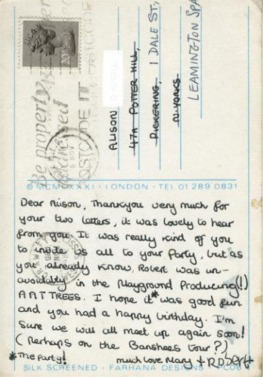 Be properly
addressed
POSTCODE IT
ALISON
47A POTTER HILL,
PICKERING.
N. YORKS.
1 DALE ST,
LEAMINGTON SPA
© MCMLXXXI LONDON · TEL 01 289 0831
Dear Alison, Thankyou very much for
your two letters, it was lovely to hear
from you. It was really kind of you
to invite us all to your Party, but as
you already know, Robert was un-
avoidably in the Playground Producing(!!)
ART TREES. I hope it* was good fun
and you had a happy birthday. I'm
sure we will all meet up again soon!
(Perhaps on the Banshees tour?)
*The party!
much love Mary + ROBERT
SILK SCREENED - FARHANA DESIGNS - ©